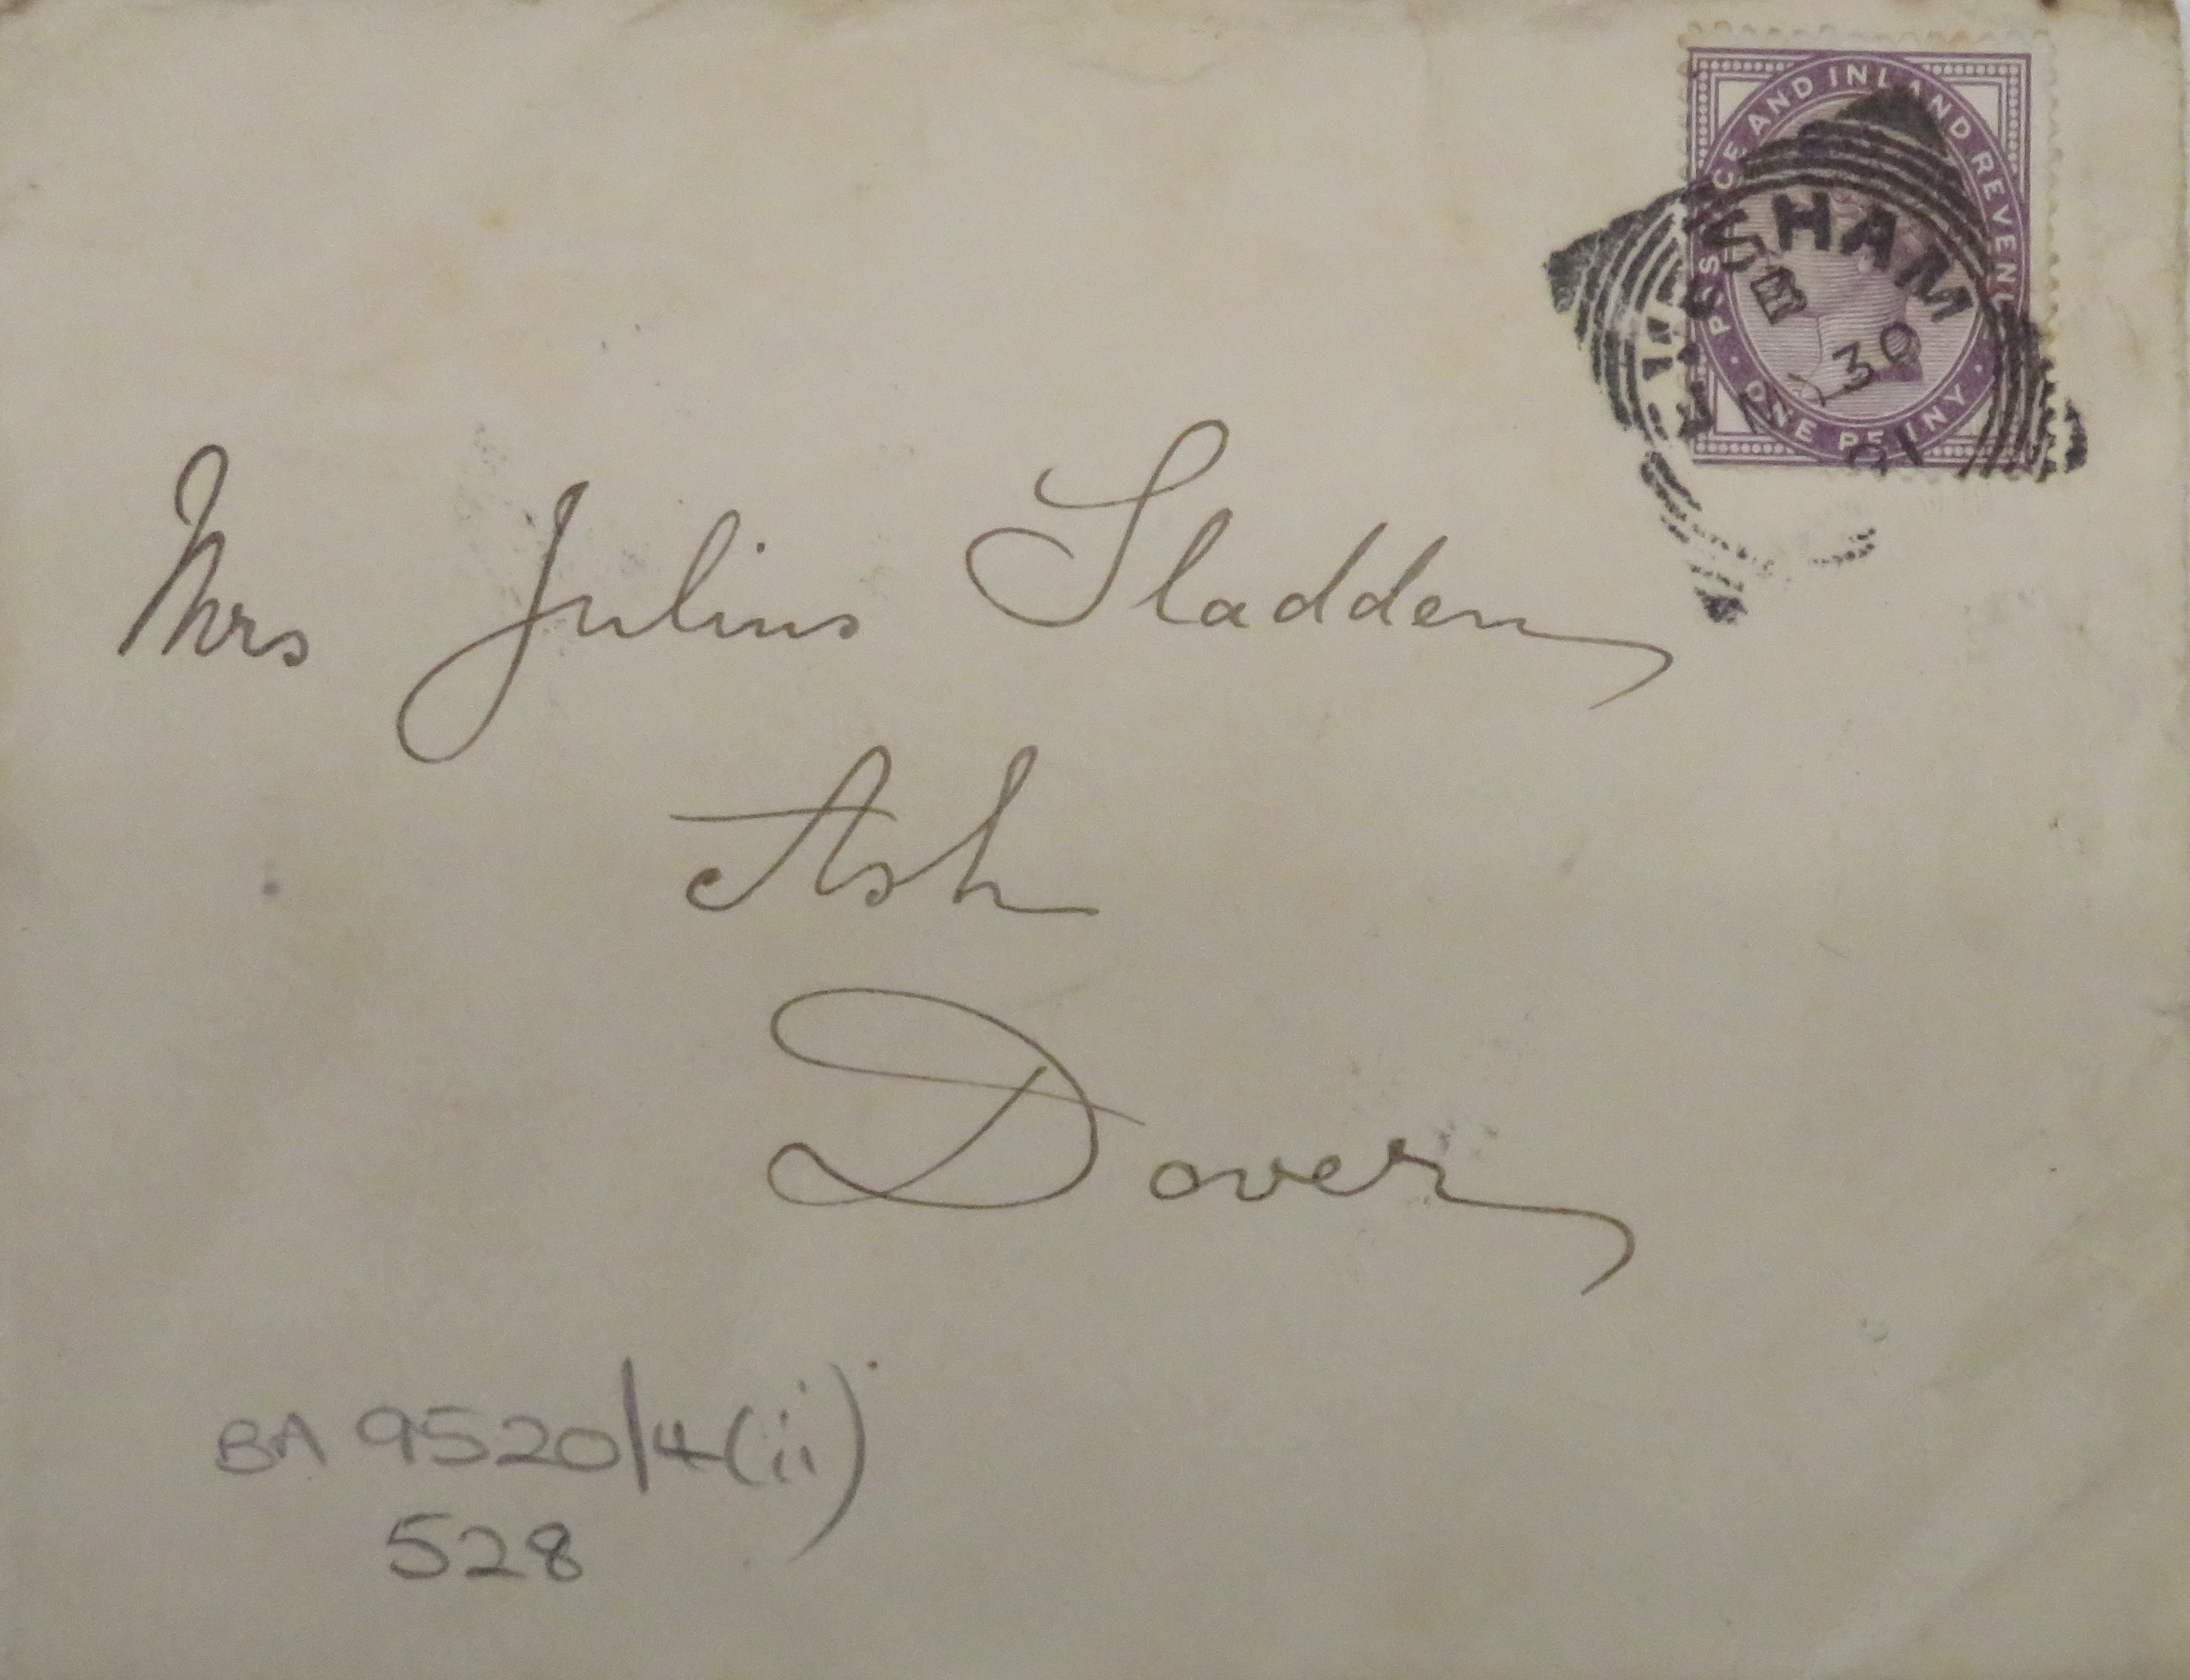 POSTAGE AND INLAND REVENUE
ONE PENNY
EVESHAM
30
91
Mrs Julius Sladden
Ash
Dover
BA 9520/4(ii)
528